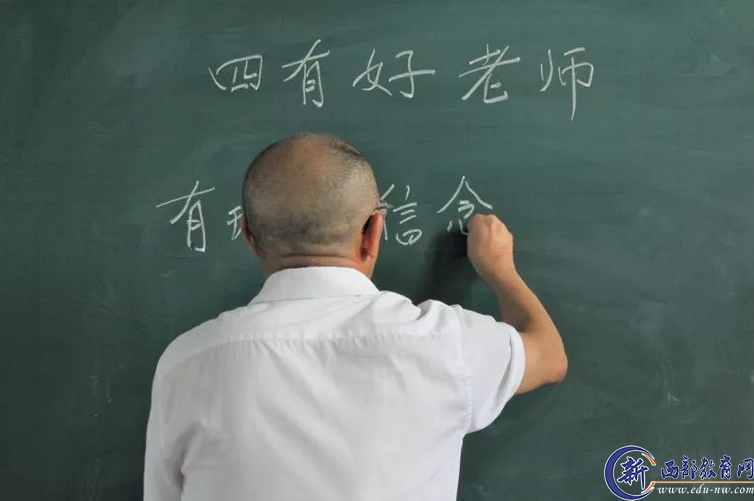 四有好老师
有 信念
新 西部教育网
www.edu-nw.com